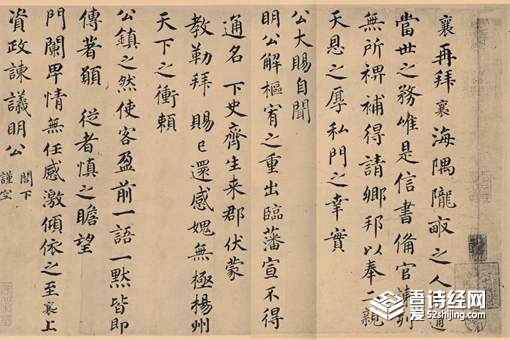 襄再拜襄海隅隴畝之人
當世之務唯是信書備官
無所裨補得請鄉邦以奉二親
天恩之厚私門之幸實
公大賜自聞
明公解樞宥之重出臨藩宣不得
通名下史齊生來郡伏蒙
教勒拜賜已還感媿無極楊州
天下之衝賴
公鎮之然使客盈前一語一默皆即
傳著願從者慎之瞻望
門闌卑情無任感激傾依之至襄上
資政諫議明公
閤下
謹空
吾诗经网
52shijing.com